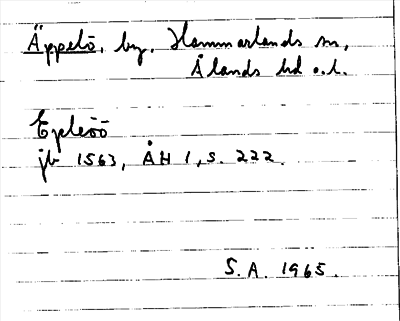 Äppelö, by. Hammarlands sn,
Ålands hd o.l.
Epleöö
jb 1563, ÅH 1, s. 222.
S.A. 1965.